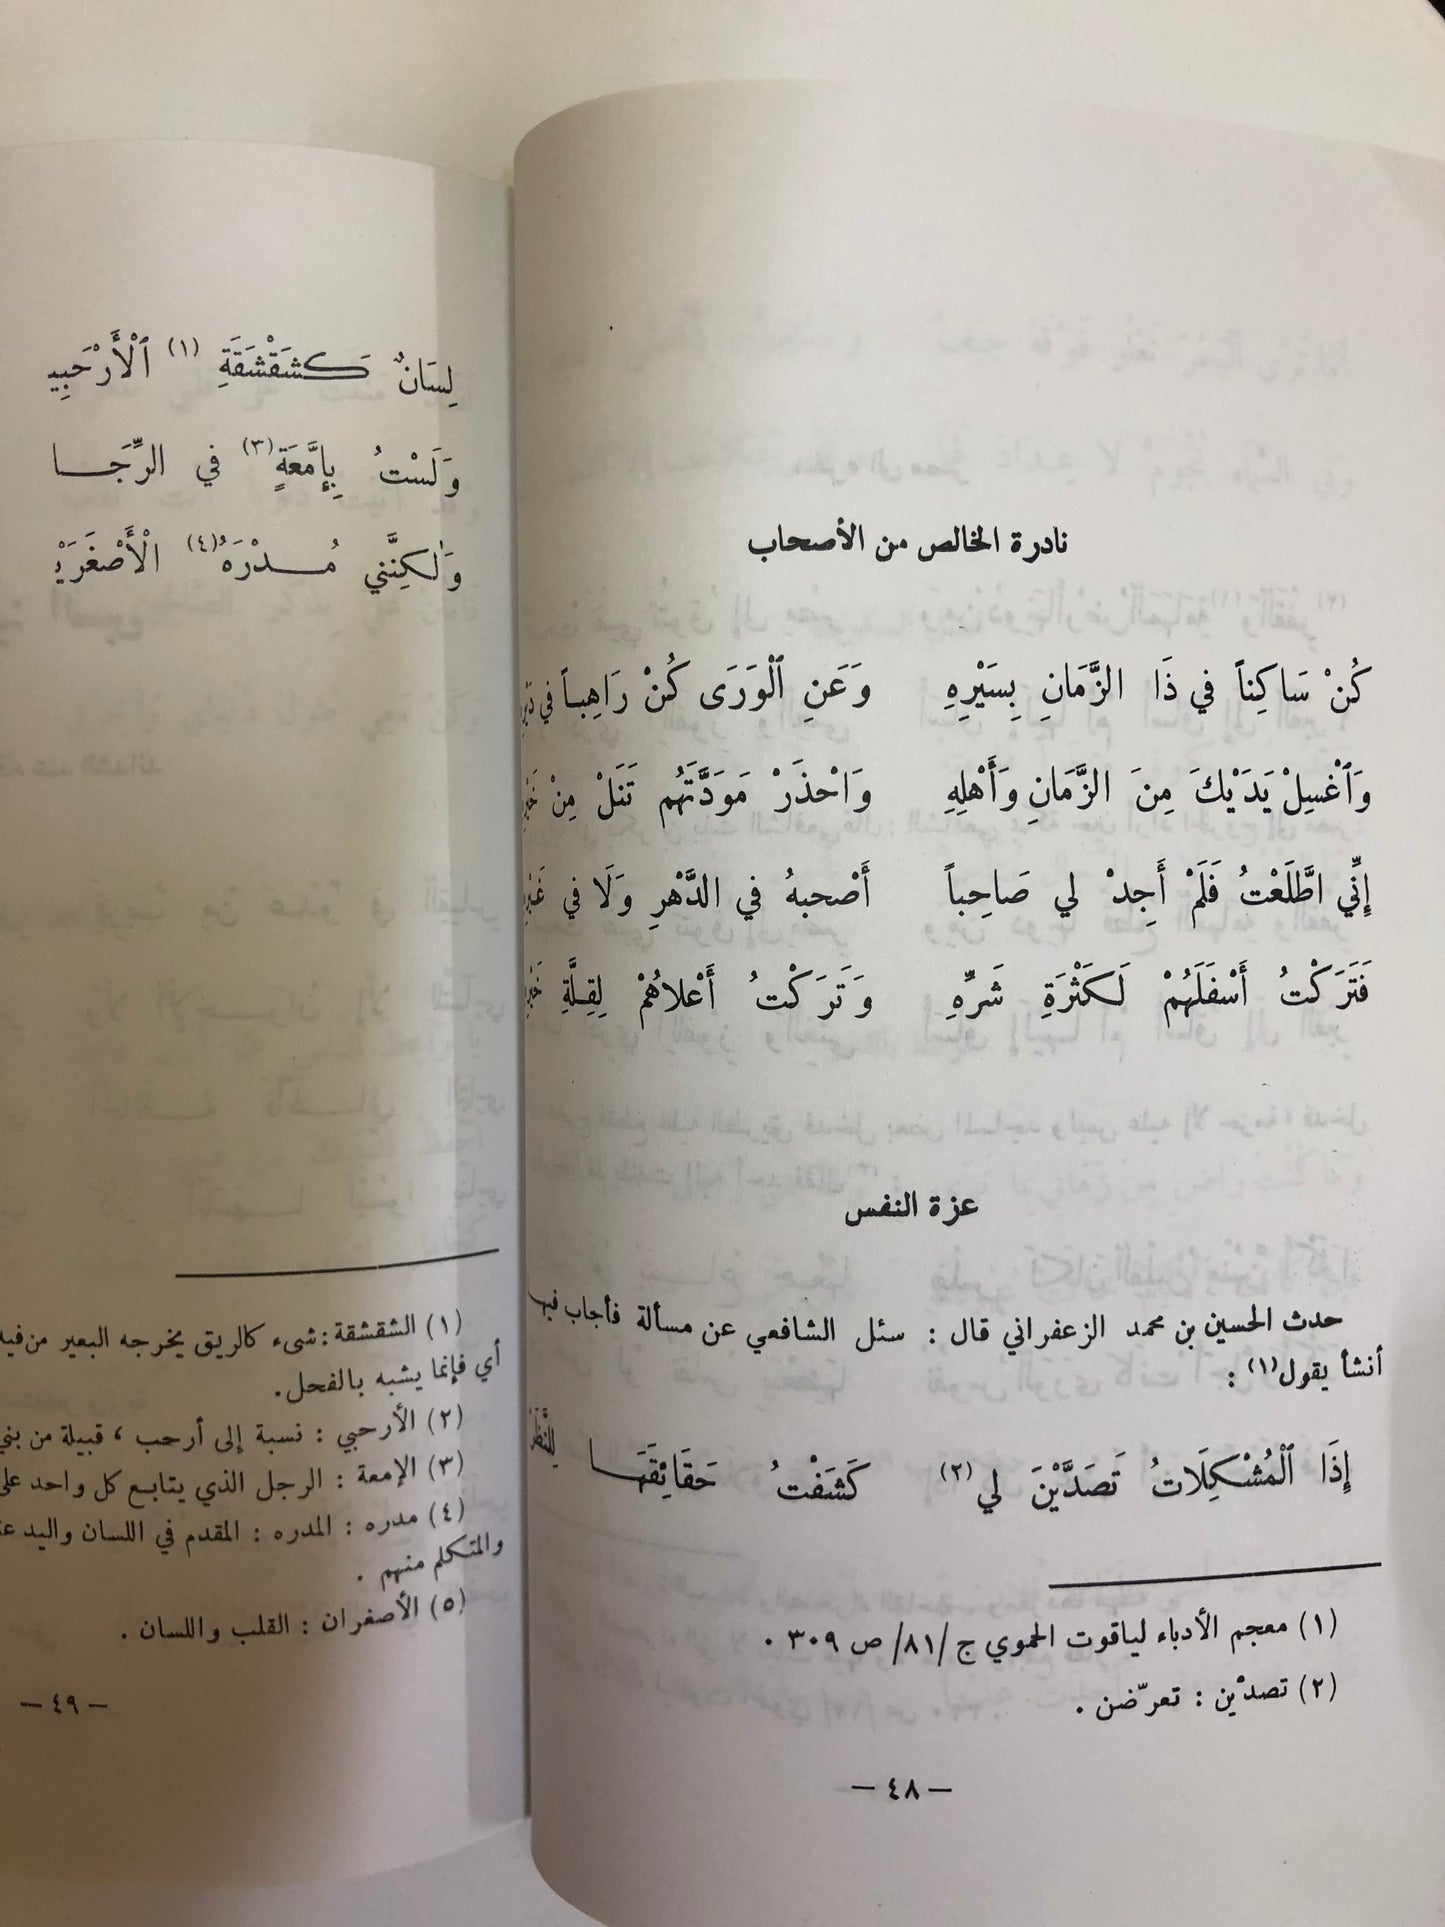 نادرة الخالص من الأصحاب
كُنْ سَاكِناً في ذَا الزَّمَانِ بِسَيْرِهِ وَعَنِ ٱلْوَرَى كُنْ رَاهِباً في
وَٱغْسِلْ يَدَيْكَ مِنَ الزَّمَانِ وَأَهْلِهِ وَاحْذَرْ مَوَدَّتَهُم تَنَلْ مِنْ
إِنِّي اطَّلَعْتُ فَلَمْ أَجِدْ لي صَاحِباً أَصْحبهُ في الدَّهْرِ وَلَا في
فَتَرَكْتُ أَسْفَلَهُمْ لَكَثْرَةِ شَرِّهِ وَتَرَكْتُ أَعْلاهُمْ لِقِلَّةِ
عزة النفس
حدث الحسين بن محمد الزعفراني قال : سئل الشافعي عن مسألة فأجاب فيها
أنشأ يقول(١) :
إِذَا ٱلْمُشْكِلَاتُ تَصَدَّيْنَ لي(٢) كَشَفْتُ حَقَائِقَهَا
(١) معجم الأدباء لياقوت الحموي ج /٨١/ ص ٣٠٩ .
(٢) تصدّين : تعرّضن .
— ٤٨ —
لِسَانٌ كَشَقْشَقَةِ (١) ٱلْأَرْحَبِي
وَلَسْتُ بِإِمَّعَةٍ(٣) في الرِّجَا
وَلٰكِنَّني مُدْرَهُ(٤) الْأَصْغَرَيْ
(١) الشقشقة : شىء كالريق يخرجه البعير من فيه
أي فإنما يشبه بالفحل .
(٢) الأرحبي : نسبة إلى أرحب ، قبيلة من بني
(٣) الإمعة : الرجل الذي يتابع كل واحد على
(٤) مدره : المدره : المقدم في اللسان واليد
والمتكلم منهم .
(٥) الأصغران : القلب واللسان .
— ٤٩ —